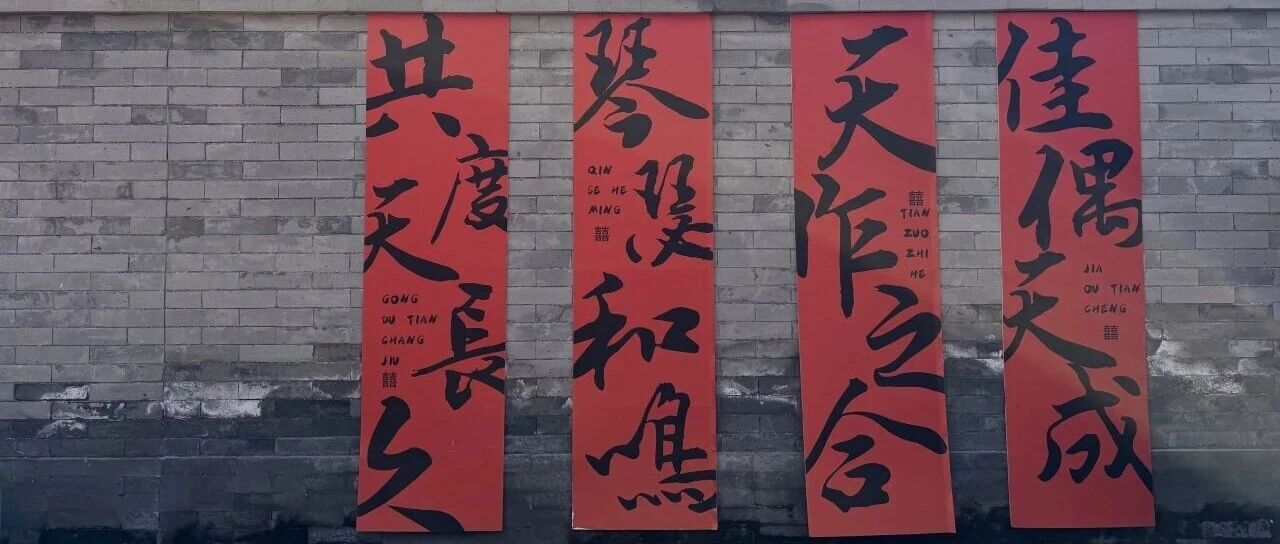 共度天長久
GONG
DU TIAN
CHANG
JIU
囍
琴瑟和鳴
QIN
SE HE
MING
囍
天作之合
囍
TIAN
ZUO
ZHI
HE
佳偶天成
JIA
OU TIAN
CHENG
囍